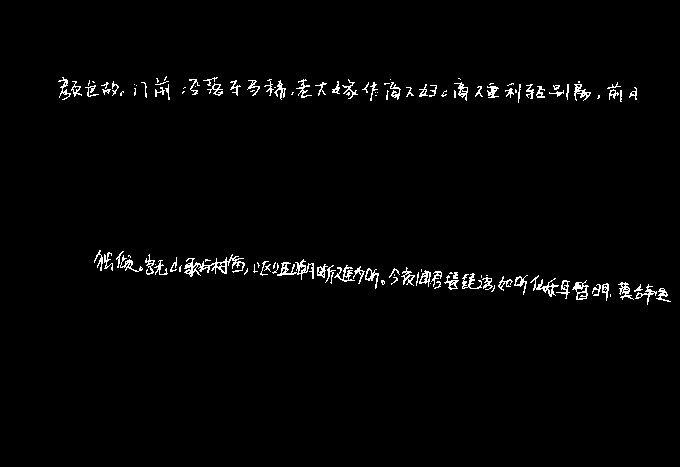 颜色故。门前冷落车马稀,老大嫁作商人妇。商人重利轻别离,前月
独倾。岂无山歌与村笛,呕哑嘲哳难为听。今夜闻君琵琶语,如听仙乐耳暂明。莫辞更